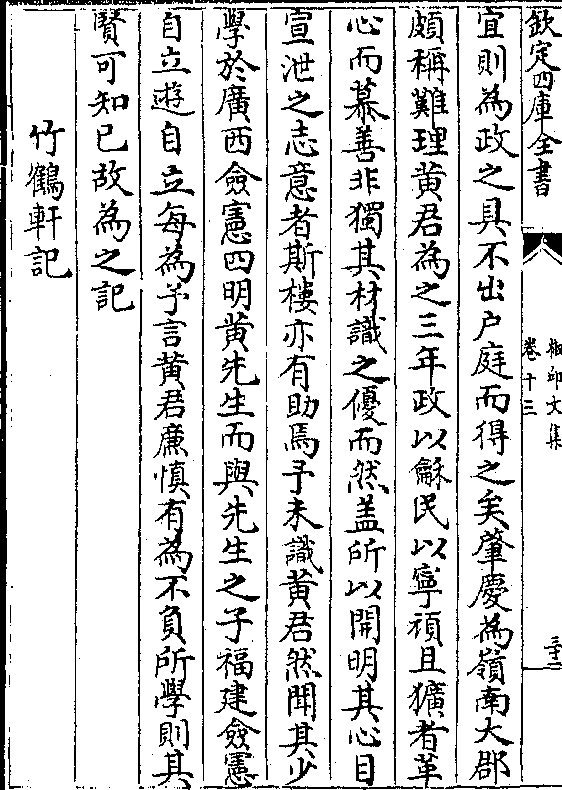 欽定四庫全書
抑菴文集
卷十三
宜則為政之具不出户庭而得之矣肇慶為嶺南大郡
頗稱難理黄君為之三年政以龢民以寧頑且獷者革
心而慕善非獨其材識之優而然盖所以開明其心目
宣泄之志意者斯樓亦有助焉予未識黄君然聞其少
學於廣西僉憲四明黄先生而與先生之子福建僉憲
自立遊自立每為予言黄君亷慎有為不負所學則其
賢可知已故為之記
竹鶴軒記